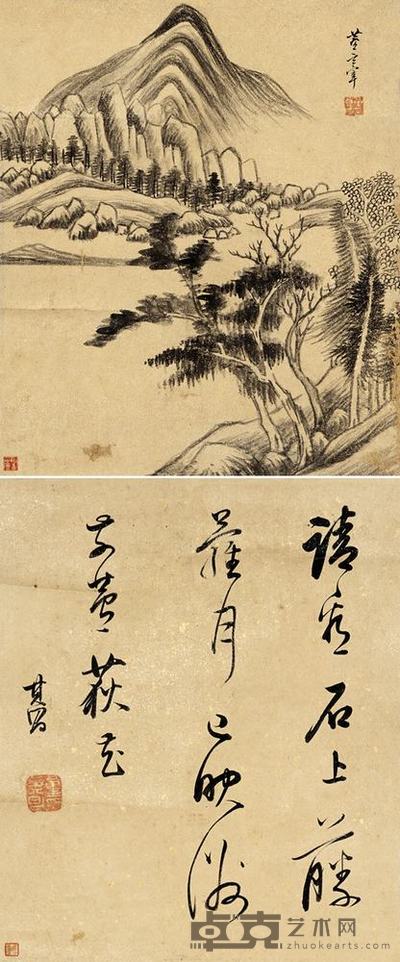 董玄宰
請看石上藤
蘿月已映洲
前蘆荻花
其昌
卓克艺术网
zhuokearts.com